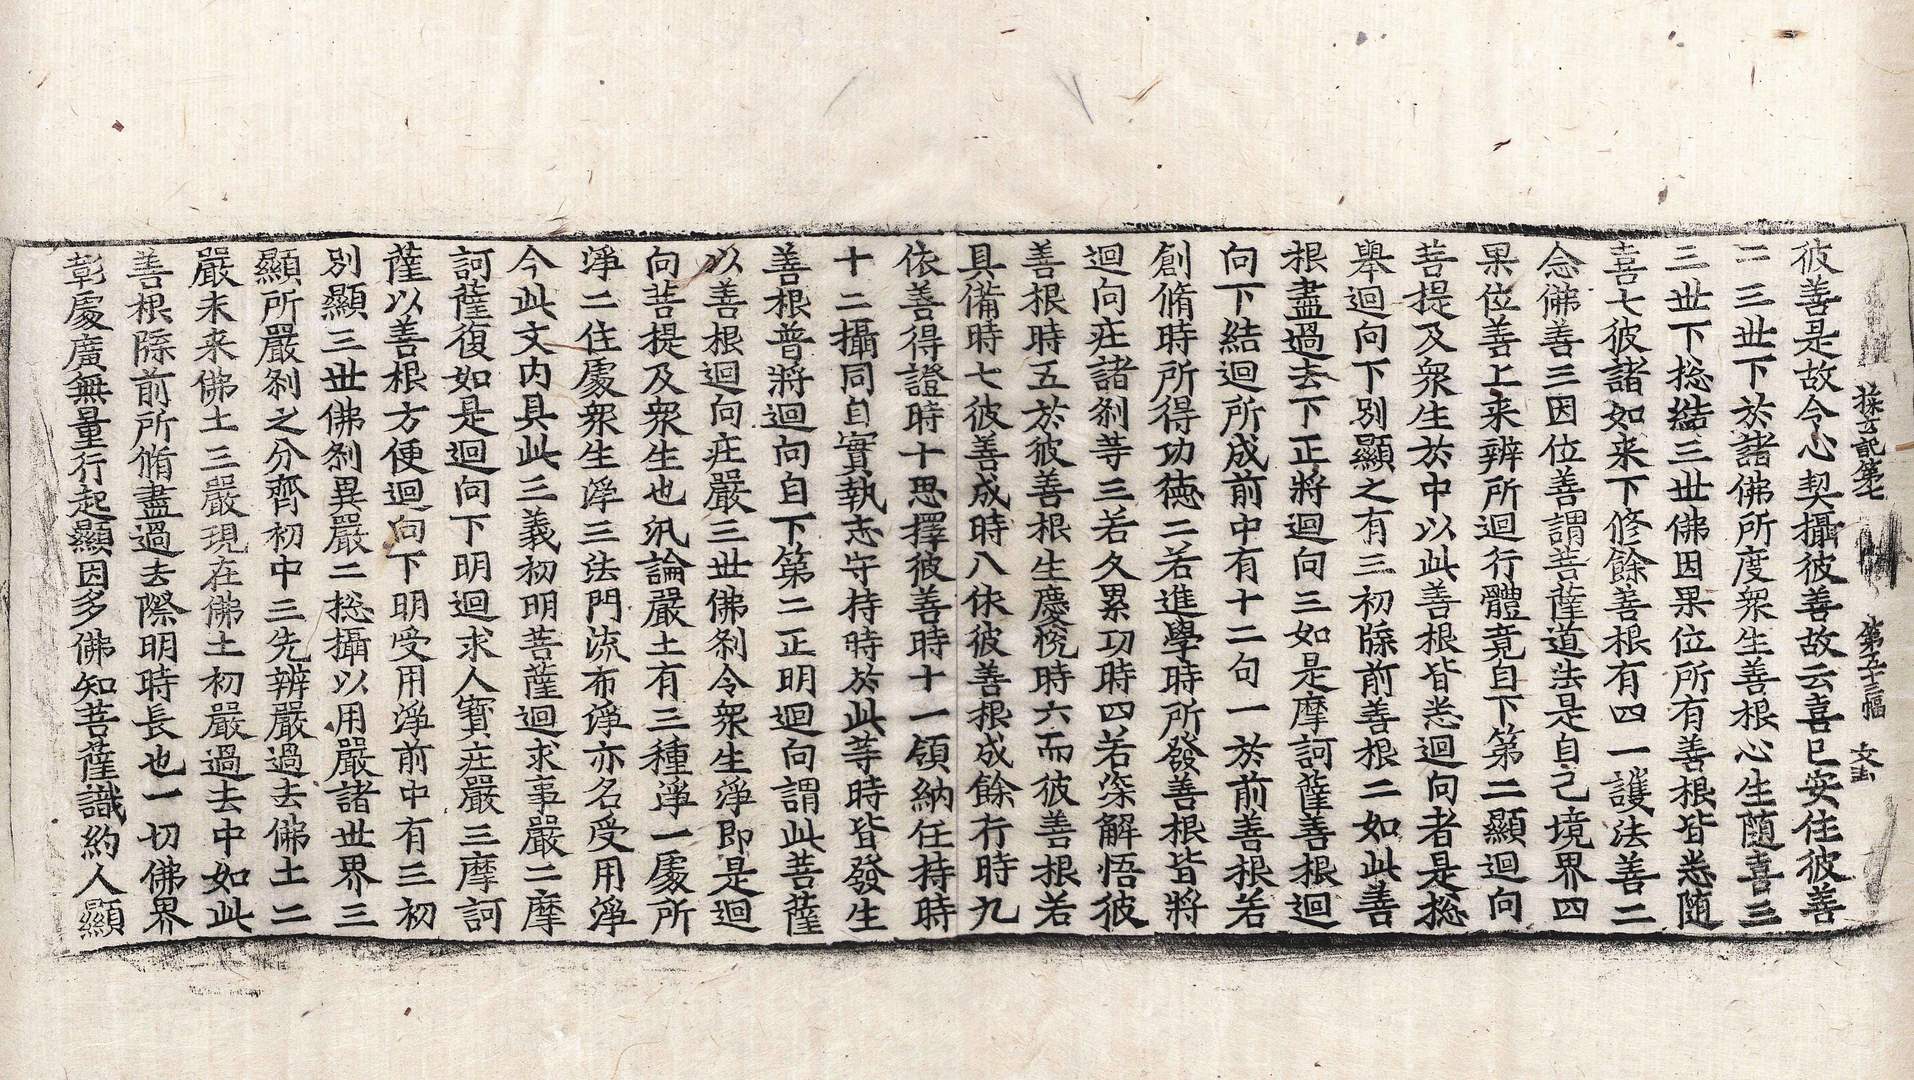 探玄記第七　第五十三幅　文
彼善是故令心契攝彼善故云喜已安住彼善
二三世下於諸佛所度衆生善根心生随喜三
三世下捴結三世佛因果位所有善根皆悉随
喜七彼諸如来下修餘善根有四一護法善二
念佛善三因位善謂菩薩道法是自己境界四
果位善上来辨所迴行體竟自下第二顯迴向
菩提及衆生於中以此善根皆悉迴向者是捴
舉迴向下別顯之有三初牒前善根二如此善
根盡過去下正將迴向三如是摩訶薩善根迴
向下結迴所成前中有十二句一於前善根若
創脩時所得功德二若進學時所發善根皆將
迴向莊諸刹等三若久累功時四若深解悟彼
善根時五於彼善根生慶悅時六而彼善根若
具備時七彼善成時八依彼善根成餘行時九
依善得證時十思擇彼善時十一領納任持時
十二攝同自實執志守持時於此等時皆發生
善根普將迴向自下第二正明迴向謂此菩薩
以善根迴向莊嚴三世佛刹令衆生淨即是迴
向菩提及衆生也汎論嚴土有三種淨一處所
淨二住處衆生淨三法門流布淨亦名受用淨
今此文内具此三義初明菩薩迴求事嚴二摩
訶薩復如是迴向下明迴求人寶莊嚴三摩訶
薩以善根方便迴向下明受用淨前中有三初
別顯三世佛刹異嚴二捴攝以用嚴諸世界三
顯所嚴刹之分齊初中三先辨嚴過去佛土二
嚴未来佛土三嚴現在佛土初嚴過去中如此
善根際前所脩盡過去際明時長也一切佛界
彰處廣無量行起顯因多佛知菩薩識約人顯